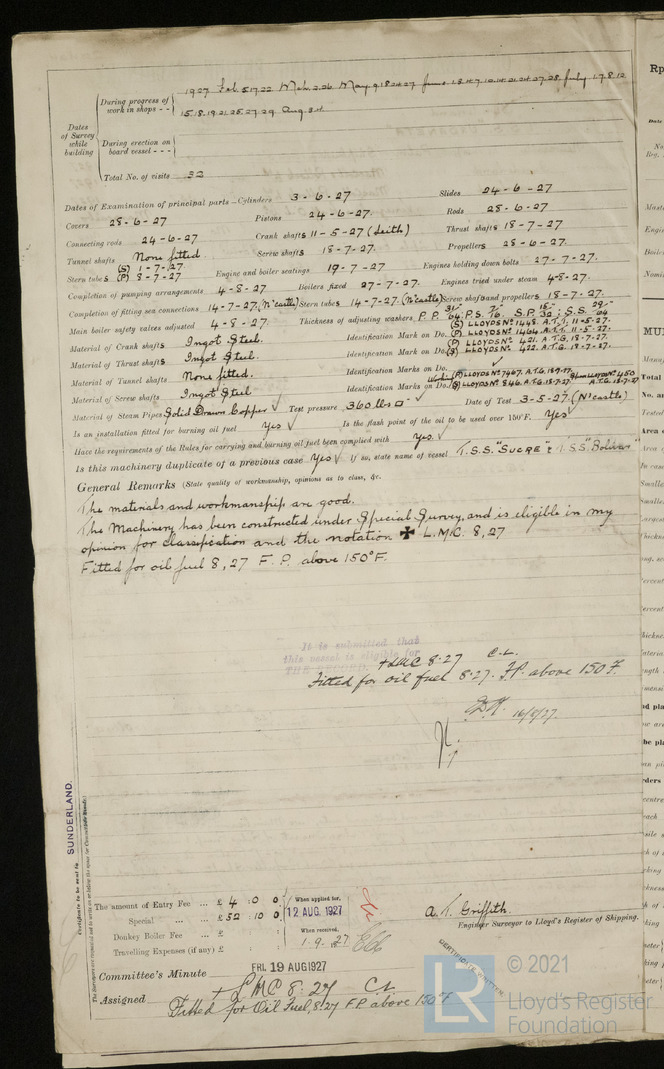 1927 Feb 5.17.22 Mch. 2.26 May 9.18.24.27 June 1.8.4.7.10.14.21.24.27.28 July 1.7.8.12
During progress of work in shops - -
15.18.19.21.25.27.29. Aug 3.4
Dates of Survey while building
During erection on board vessel - - -
Total No. of visits 32
Dates of Examination of principal parts—Cylinders 3-6-27 Slides 24-6-27
Covers 28-6-27 Pistons 24-6-27 Rods 28-6-27
Connecting rods 24-6-27 Crank shafts 11-5-27 (Leith) Thrust shafts 18-7-27
Tunnel shafts None fitted Screw shafts 18-7-27. Propellers 28-6-27.
Stern tubes (S) 1-7-27 (P) 8-7-27 Engine and boiler seatings 19-7-27 Engines holding down bolts 27-7-27.
Completion of pumping arrangements 4-8-27 Boilers fixed 27-7-27. Engines tried under steam 4-8-27.
Completion of fitting sea connections 14-7-27. (N'castle) Stern tubes 14-7-27. (N'castle) Screw shaft and propellers 18-7-27.
Main boiler safety valves adjusted 4-8-27. Thickness of adjusting washers P.P. 31/64: P.S. 7/16. S.P. 15/32: S.S. 29/64
Material of Crank shafts Ingot Steel. Identification Mark on Do. (S) LLOYDS No 1448. A.T.T. 11-5-27. (P) LLOYDS No. 1464. A.T.T. 11-5-27.
Material of Thrust shafts Ingot Steel. Identification Mark on Do. (P) LLOYDS No. 421. A.T.G. 18-7-27. (S) LLOYDS No. 422. A.T.G. 18-7-27.
Material of Tunnel shafts None fitted. Identification Marks on Do.
Material of Screw shafts Ingot Steel Identification Marks on Do. Working (P) LLOYDS No 7467. A.T.G. 18-7-27. (S) LLOYDS No 846. A.T.G. 18-7-27 Spare LLOYDS No 450 A.T.G. 18-7-27
Material of Steam Pipes Solid Drawn Copper ✓ Test pressure 360 lbs □" ✓ Date of Test 3-5-27. (N'castle)
Is an installation fitted for burning oil fuel Yes ✓ Is the flash point of the oil to be used over 150°F. Yes ✓
Have the requirements of the Rules for carrying and burning oil fuel been complied with Yes. ✓
Is this machinery duplicate of a previous case Yes ✓ If so, state name of vessel T.S.S. "SUCRE" & T.S.S. "Bolivar"
General Remarks (State quality of workmanship, opinions as to class, &c.
The materials and workmanship are good.
The Machinery has been constructed under Special Survey, and is eligible in my
opinion for classification and the notation ✠ L.M.C. 8,27
Fitted for oil fuel 8,27 F.P. above 150°F.
It is submitted that
this vessel is eligible for
THE RECORD. + LMC 8.27 C.L.
Fitted for oil fuel 8.27. F.P. above 150 F.
16/8/27.
SUNDERLAND.
The amount of Entry Fee ... £ 4 : 0 : 0 When applied for,
Special ... £ 52 : 10 : 0 12 AUG. 1927
Donkey Boiler Fee ... £ When received,
Travelling Expenses (if any) £ 1.9.27
A. T. Griffith.
Engineer Surveyor to Lloyd's Register of Shipping.
CERTIFICATE WRITTEN.
Committee's Minute FRI. 19 AUG 1927
Assigned + LMC 8.27 C.L.
Fitted for Oil Fuel, 8.27 F.P. above 150°F
LR © 2021
Lloyd's Register
Foundation